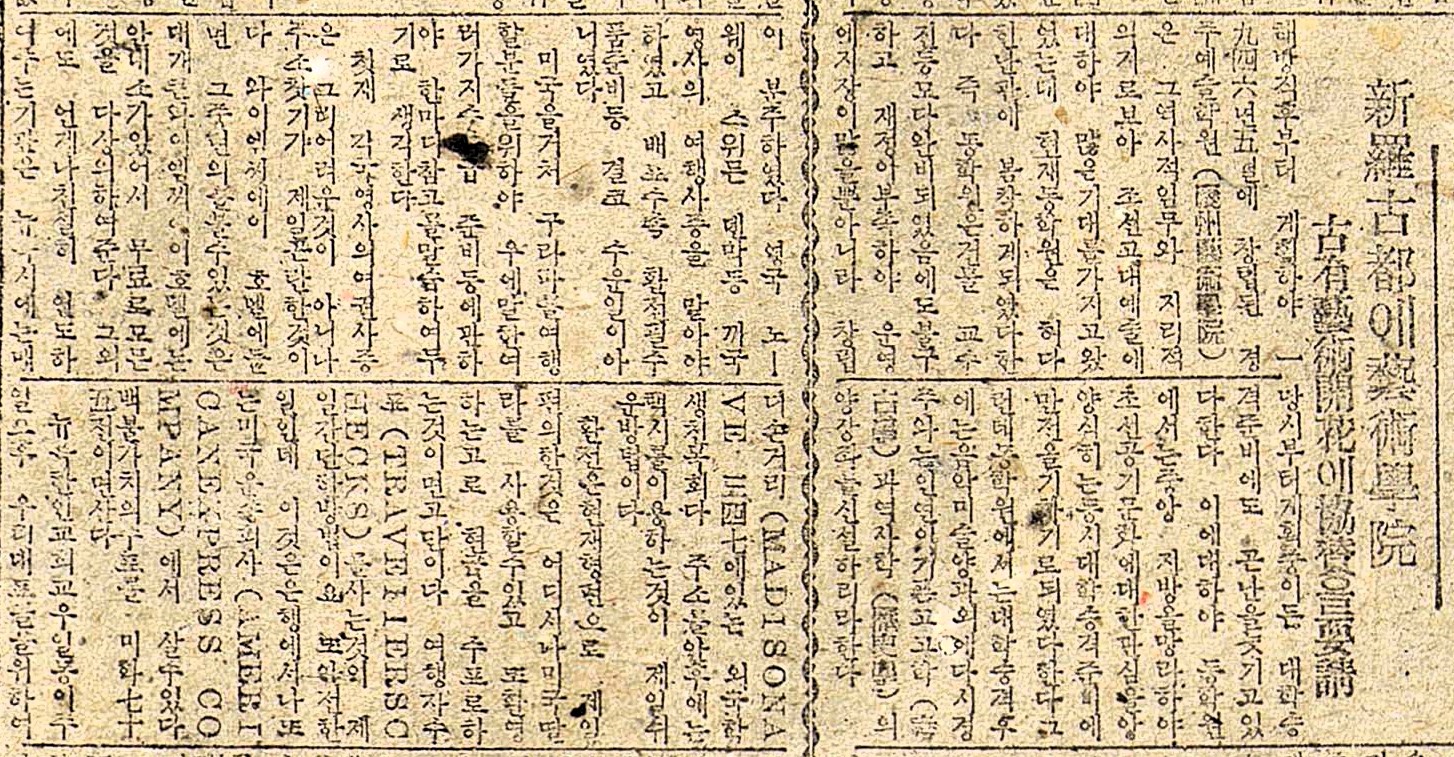 新羅古都에藝術學院
古有藝術開花에協存을要請
해방직후부터 계획하야 一
九四六年五月에 창립된 경
주예술학원(慶州藝術學院)
은 그역사적임무와 지리적
의기로보아 조선고대예술에
대하야 많은기대를가지고왔
었는대 현재동학원은 허다
한난관에 봉착하게되았다한
다 즉 동학원은건물 교수
진등모다완비되있음에도불구
하고 재정이부족하야 운영
에지장이많을뿐아니라 창립
당시부터계획중이든 대학승
격준비에도 곤난을겻기고있
다한다 이에대하야 동학원
에서는 지방을망라하야
조선공기문화에대한관심을앙
양식히는동시대학승격주비에
만전을기하기로되였다한다그
런데동학원에서는대학승격후
에는음악미술양과외에다시경
주와는인연이기픈고고학(考
古學)과역사학(歷史學)의
양강좌를신설하리라한다
이 분주하였다 영국 노ー
웨이 스위든 덴막등 각국
영사의 여행사증을 맡아야
하였고 배표수속 환전필수
품준비등 결코 수운일이아
니였다
미국을거처 구라파를여행
할분들을위하야 우에말한여
러가지수속 준비등에관하
야 한마디참고물말슴하여두
기로 생각한다
첫재 각국영사의여권사증
은 그리어려운것이 아니나
주소찾기가 제일곤난한것이
다 와이엠씨에이 호텔에들
면 그주인의줄수있는것은
대개한와이엠께이호텔에는
안내소가있어서 무료로모든
것을 다상의하여준다 그외
에도 언제나친절히 원도하
여주는기관은 뉴욕시에는매
더손거리(MADISONA
VE 三四七에있는 외국학
생친목회다 주소를안후에는
택시를이용하는것이 제일쉬
운방법이다
환전은현재형편으로 제일
편의한것은 어디서나미국딸
라를 사용할수있고 또환영
하는고로 현금을 수표로하
는것이면고만이다 여행자수
표(TRAVELLERSC
HECKS)를사는것이 제
일간단한방법이요 또안전한
일인데 이것은은행에서나또
는미국운송회사(AMERI
CANEXPRESS CO
MPANY)에서 살수있다
백불가치의수표를 미화七十
五전이면산다
뉴욕한인교회교우일동이주
일오후 우리대표들을위하여